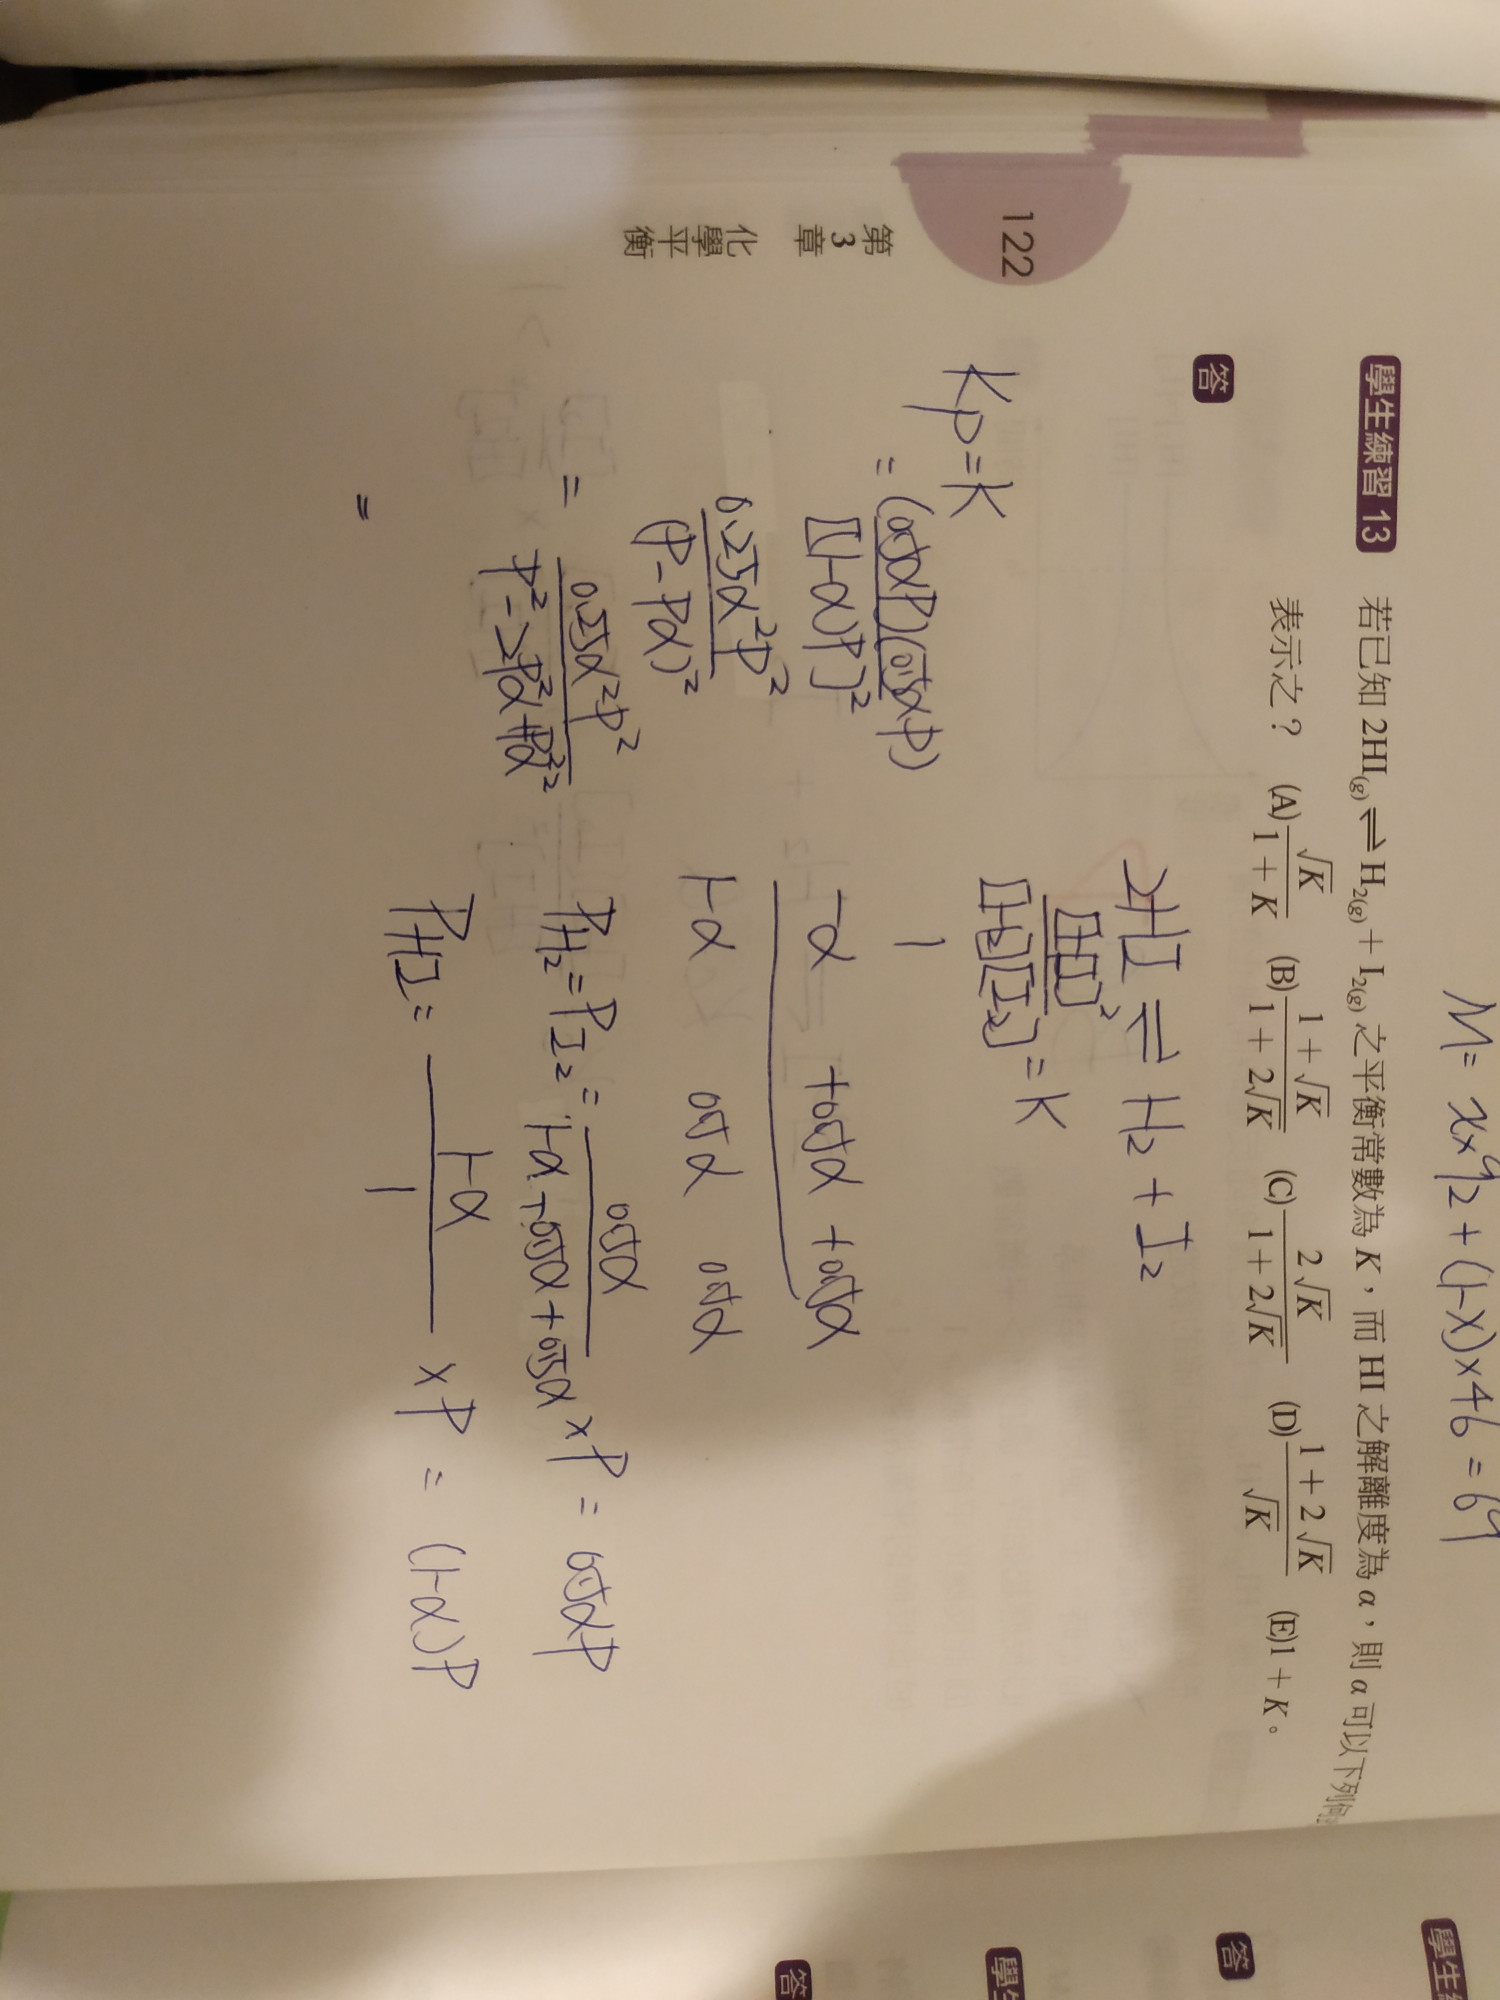 M = x×92 + (1-x)×46 = 69
學生練習 13 若已知 2HI(g) ⇌ H2(g) + I2(g) 之平衡常數為 K，而 HI 之解離度為 α，則 α 可以下列何
表示之？ (A) √K / 1 + K (B) 1 + √K / 1 + 2√K (C) 2√K / 1 + 2√K (D) 1 + 2√K / √K (E) 1 + K。
答
2HI ⇌ H2 + I2
[HI]² / [H2][I2] = K
1
-α +0.5α +0.5α
1-α 0.5α 0.5α
PH2 = PI2 = 0.5α / 1-α+0.5α+0.5α × P = 0.5αP
PHI = 1-α / 1 × P = (1-α)P
Kp = K
= (0.5αP)(0.5αP) / [(1-α)P]²
0.25α²P² / (P-Pα)²
= 0.25α²P² / P²-2P²α+P²α²
=
122
第3章 化學平衡
學生
答
學生
答